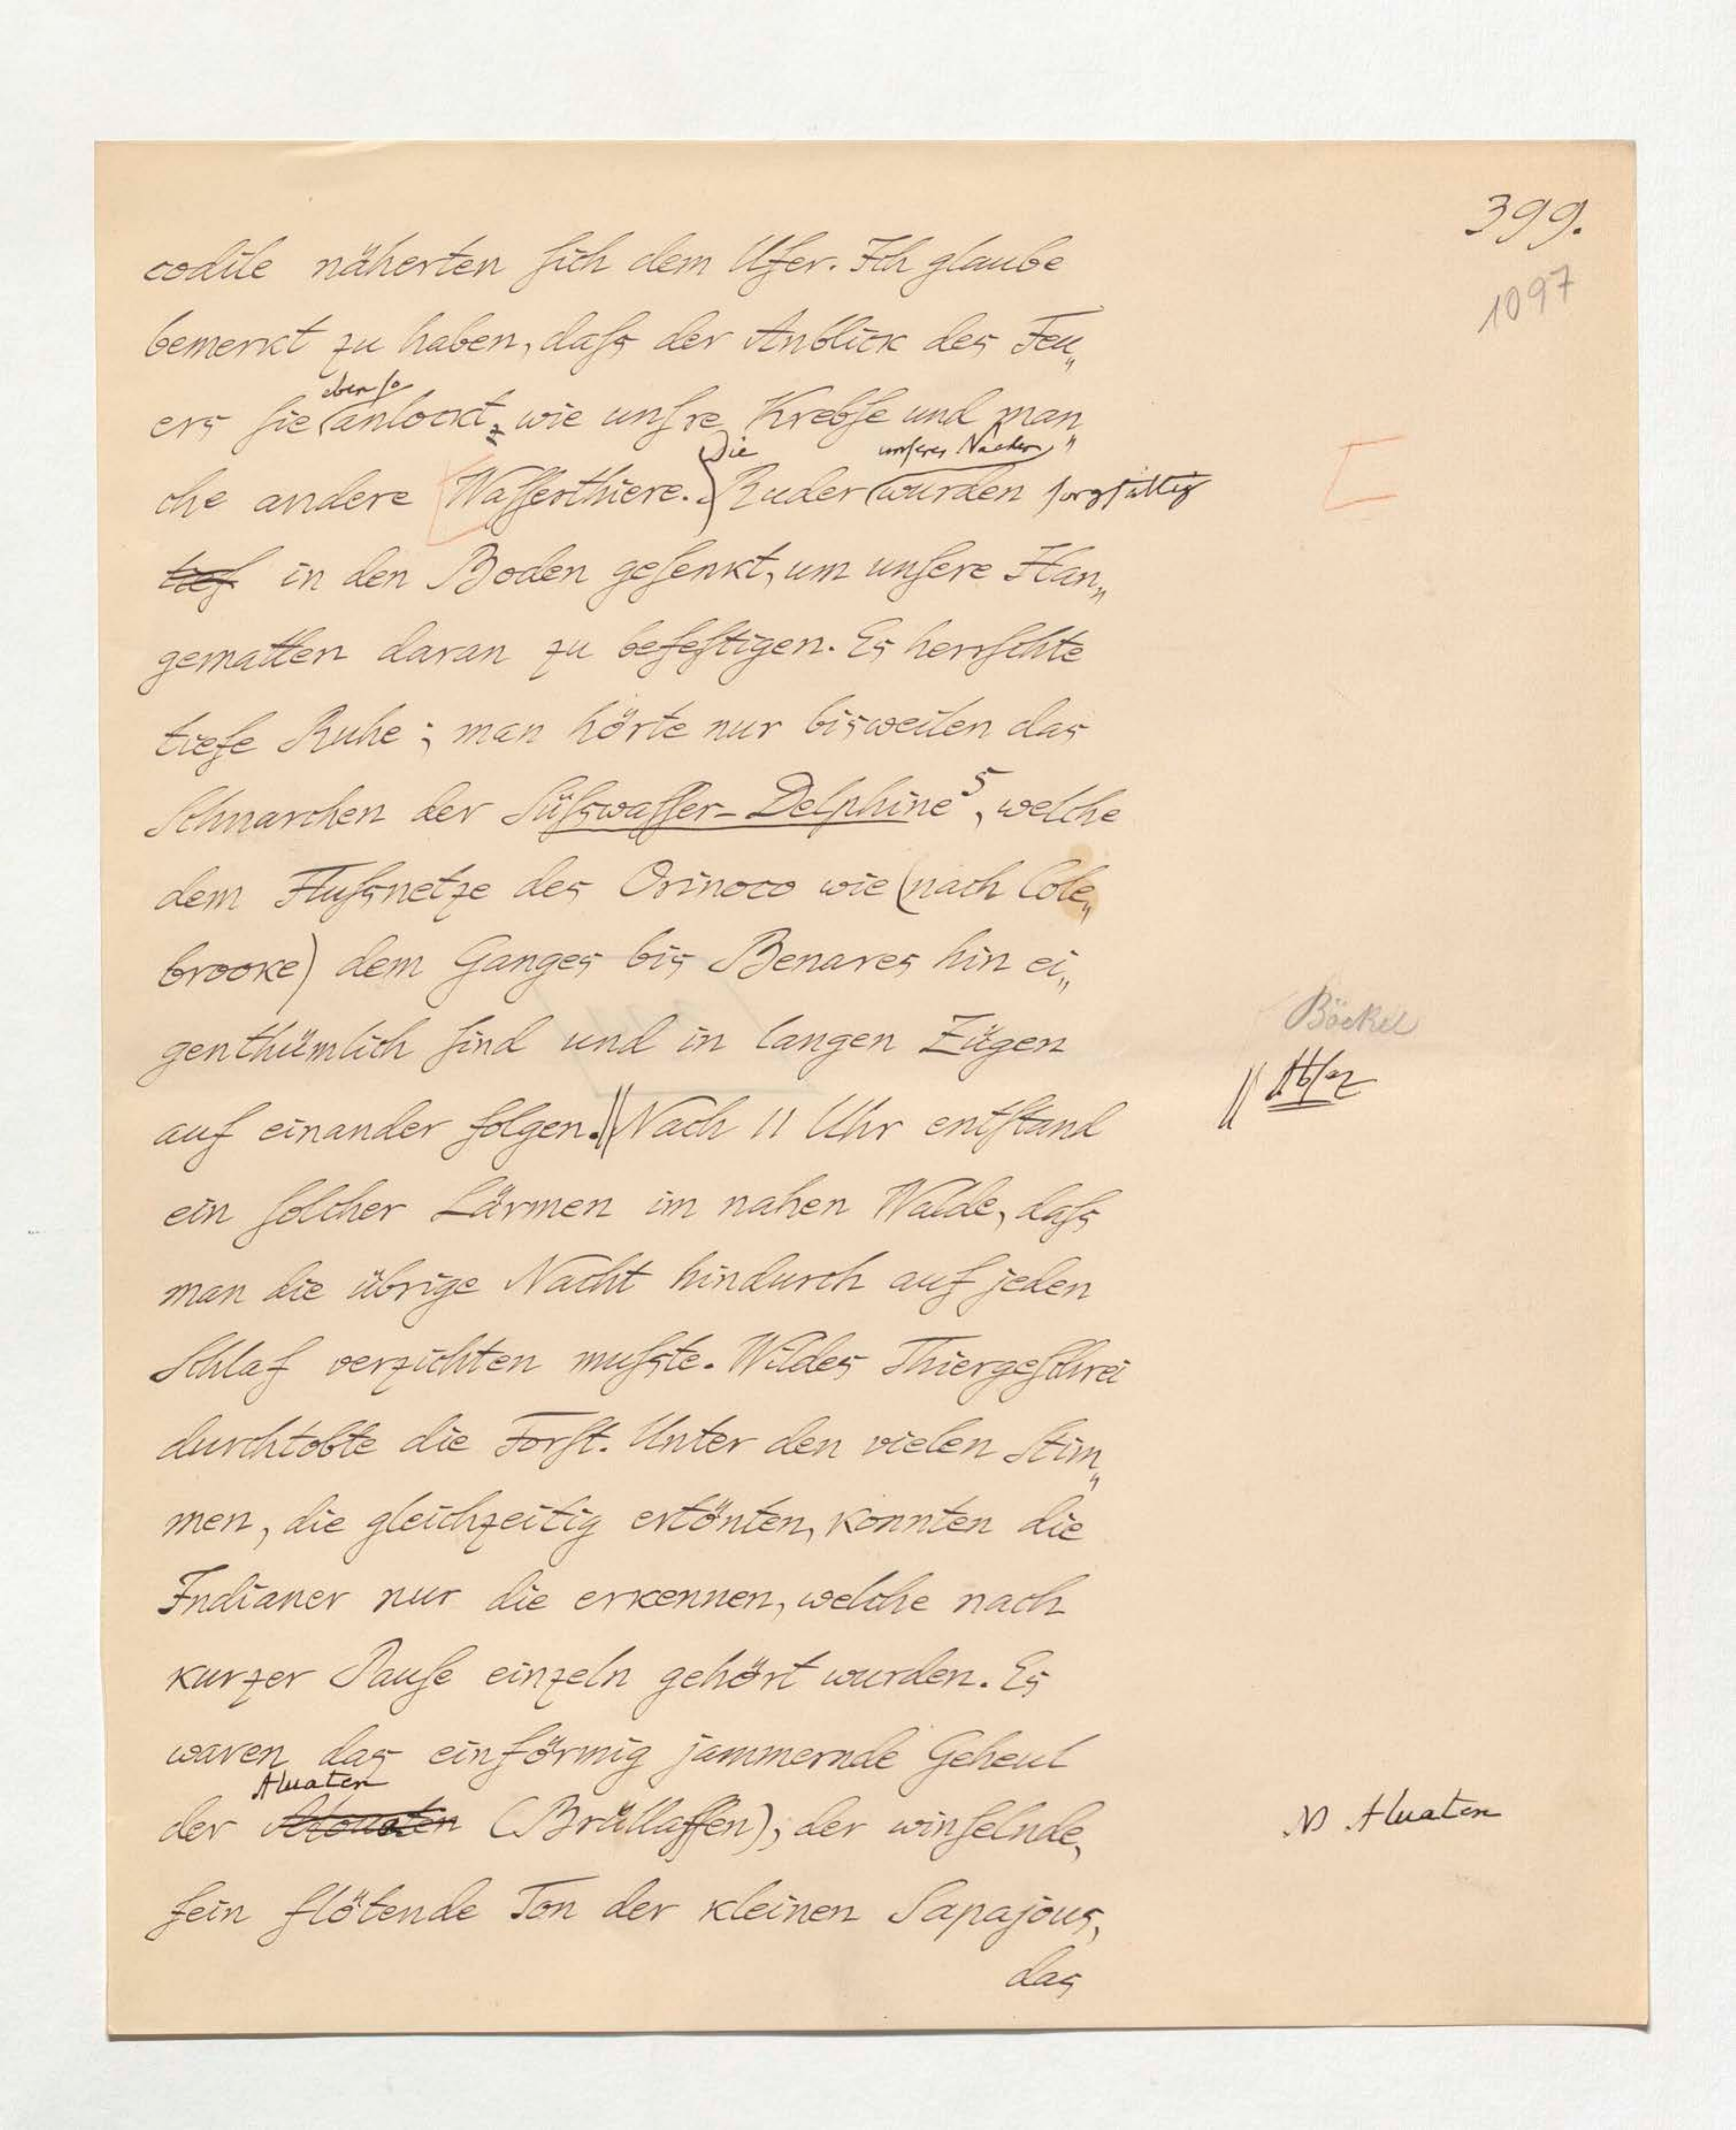 399.
1097
codile näherten ſich dem Ufer. Ich glaube
bemerkt zu haben, daſs der Anblick des Feu„
eben ſo
ers ſie anlockt, wie unſre Krebſe und man„
Die unſeres Nachens
che andere Waſſerthiere. Ruder wurden ſorgfältig
tief in den Boden geſenkt, um unſere Han„
gematten daran zu befeſtigen. Es herrſchte
tiefe Ruhe; man hörte nur bisweilen das
Schnarchen der Süſswaſſer-Delphine⁵, welche
dem Fluſsnetze des Orinoco wie (nach Cole„
brooke) dem Ganges bis Benares hin ei„
Böckel
genthümlich ſind und in langen Zügen
|| Abſaz
auf einander folgen. || Nach 11 Uhr entſtand
ein ſolcher Lärmen im nahen Walde, daſs
man die übrige Nacht hindurch auf jeden
Schlaf verzichten muſste. Wildes Thiergeſchrei
durchtobte die Forſt. Unter den vielen Stim„
men, die gleichzeitig ertönten, konnten die
Indianer nur die erkennen, welche nach
kurzer Pauſe einzeln gehört wurden. Es
waren das einförmig jammernde Geheul
Aluaten
der (Brüllaffen); der winſelnde,
Aluaten
fein flötende Ton der kleinen Sapajous,
das